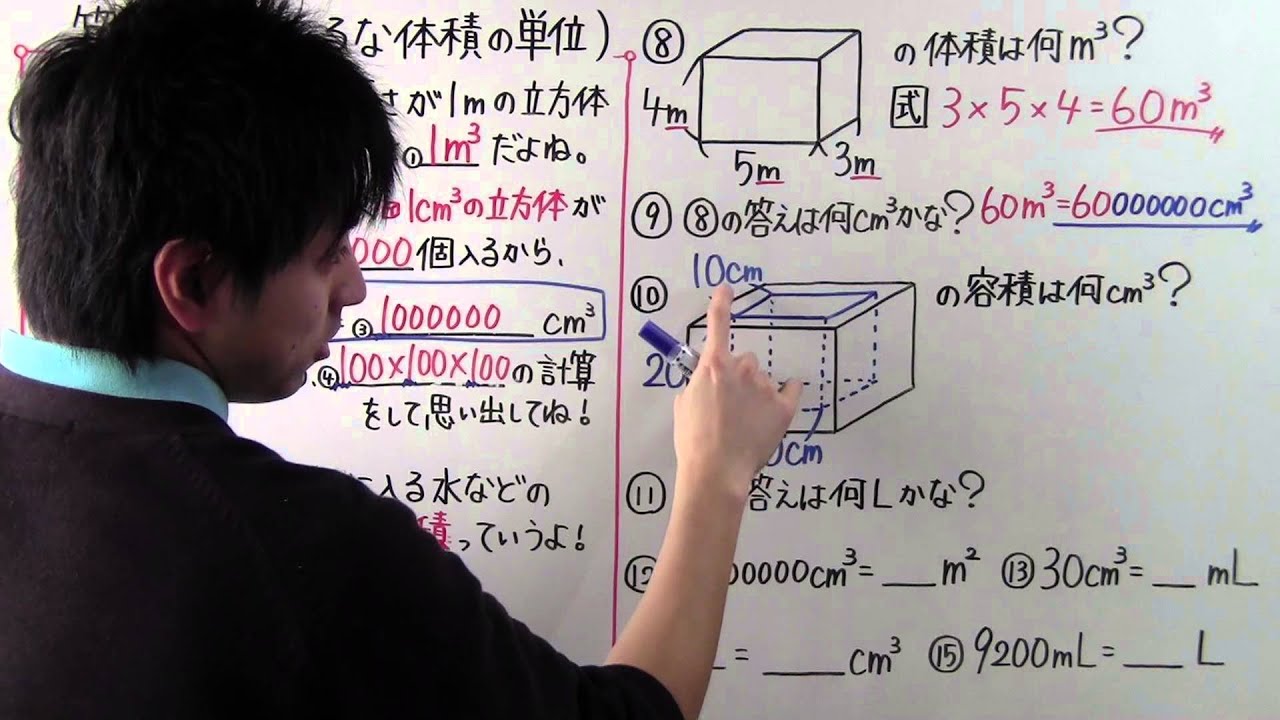 るな体積の単位)
さが1mの立方体
①1m³だよね。
1cm³の立方体が
000個入るから、
③1000000 cm³
④100×100×100の計算
をして思い出してね!
に入る水などの
積っていうよ!
⑧ の体積は何m³?
4m
5m
3m
式 3×5×4=60m³
⑨ ⑧の答えは何cm³かな? 60m³=60000000cm³
⑩ の容積は何cm³?
10cm
20
0cm
⑪ 答えは何Lかな?
⑫ 00000cm³= m² ⑬30cm³= mL
= cm³ ⑮9200mL= L